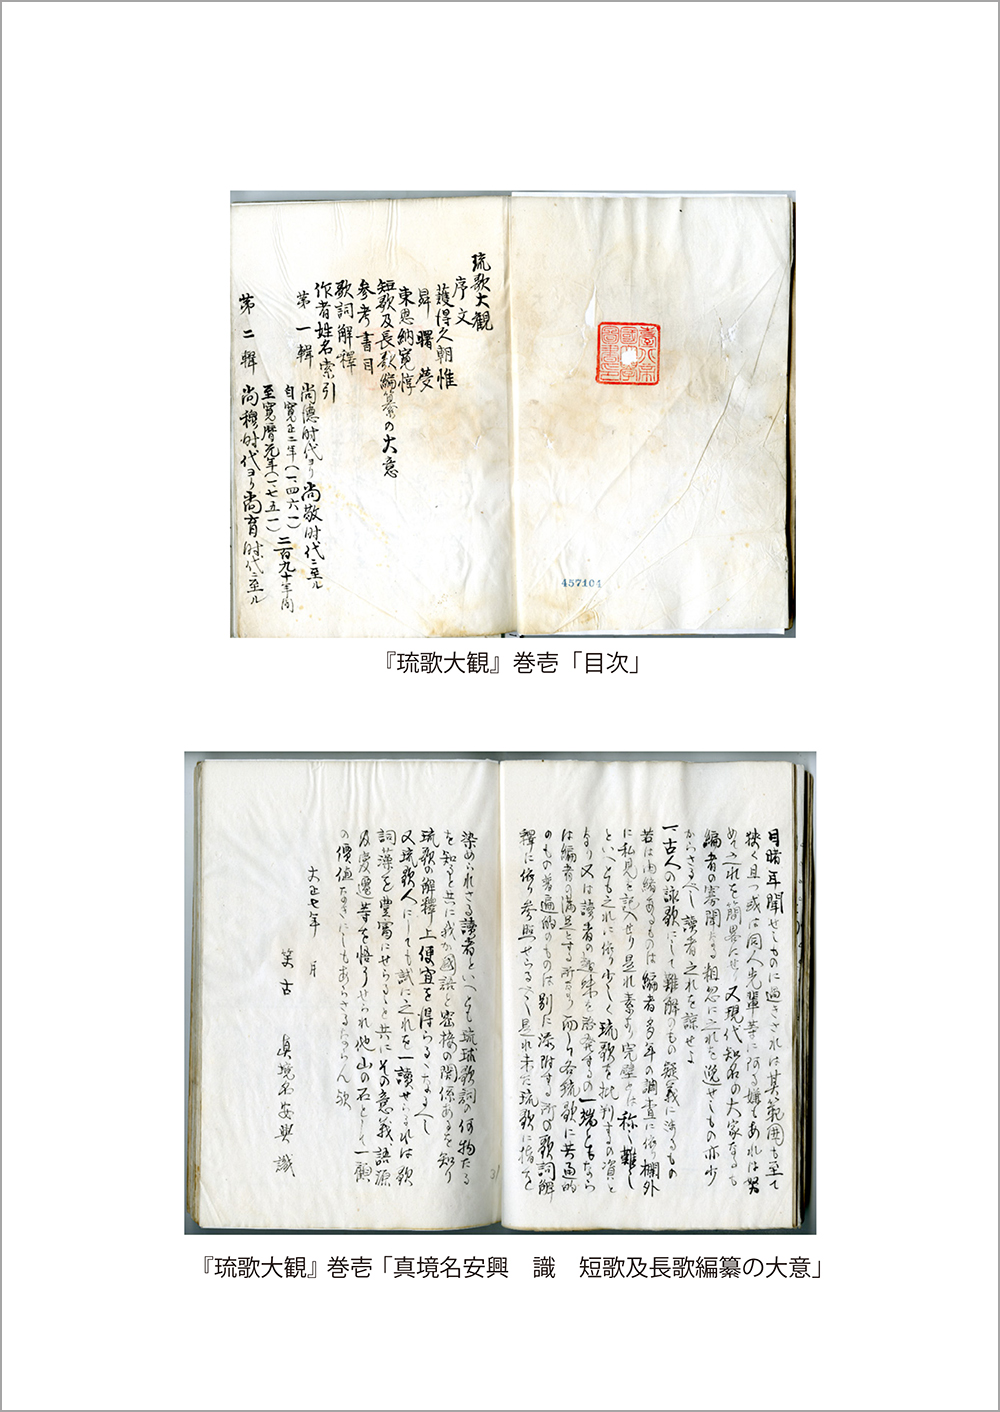 臺北帝
國大學
圖書印
457104
琉歌大観
序文
護得久朝惟
昇曙夢
東恩納寛惇
短歌及長歌編纂の大意
参考書目
歌詞解釋
作者姓名索引
第一輯 尚徳時代ヨリ尚敬時代ニ至ル
自寛正二年(一、四六一)
至寛暦元年(一、七五一) 二百九十年間
第二輯 尚穆時代ヨリ尚育時代ニ至ル
『琉歌大観』巻壱「目次」
目睹耳聞せしものに過きされは其範囲も至て
狭く且つ或は同人先輩等に阿る嫌もあれは努
めて之れを簡畧にせり又現代知名の大家なるも
編者の寡聞なる相忽に之れを逸せしもの亦少
からさるへし讀者之れを諒せよ
一、古人の詠歌にして難解のもの疑義に渉るもの
若は由緒あるものは編者多年の調査に依り欄外
に私見を記入せり是れ素より完璧とは称し難し
といへとも之れに依り少しく琉歌を批判するの資と
なり又は讀者の趣味を啓發するの一端ともなら
は編者の満足とする所なり而して各琉歌に共通的
のもの普遍的のものは別に添附する所の歌詞解
釋に依り参照せらるへし是れ未た琉歌に指を
染められさる讀者といへとも琉球歌詞の何物たる
を知ると共に我か國語と密接の関係あるを知り
琉歌の解釋上便宜を得らるゝなるへし
又琉歌人にしても試に之れを一讀せられなは歌
詞藻を豊富にせらるゝと共にその意義、語源
及変遷等を悟うせられ他山の石として一顧
の價値なきにしもあらさるならん歟
大正七年 月
笑古 真境名安興 識
31
『琉歌大観』巻壱「真境名安興 識 短歌及長歌編纂の大意」